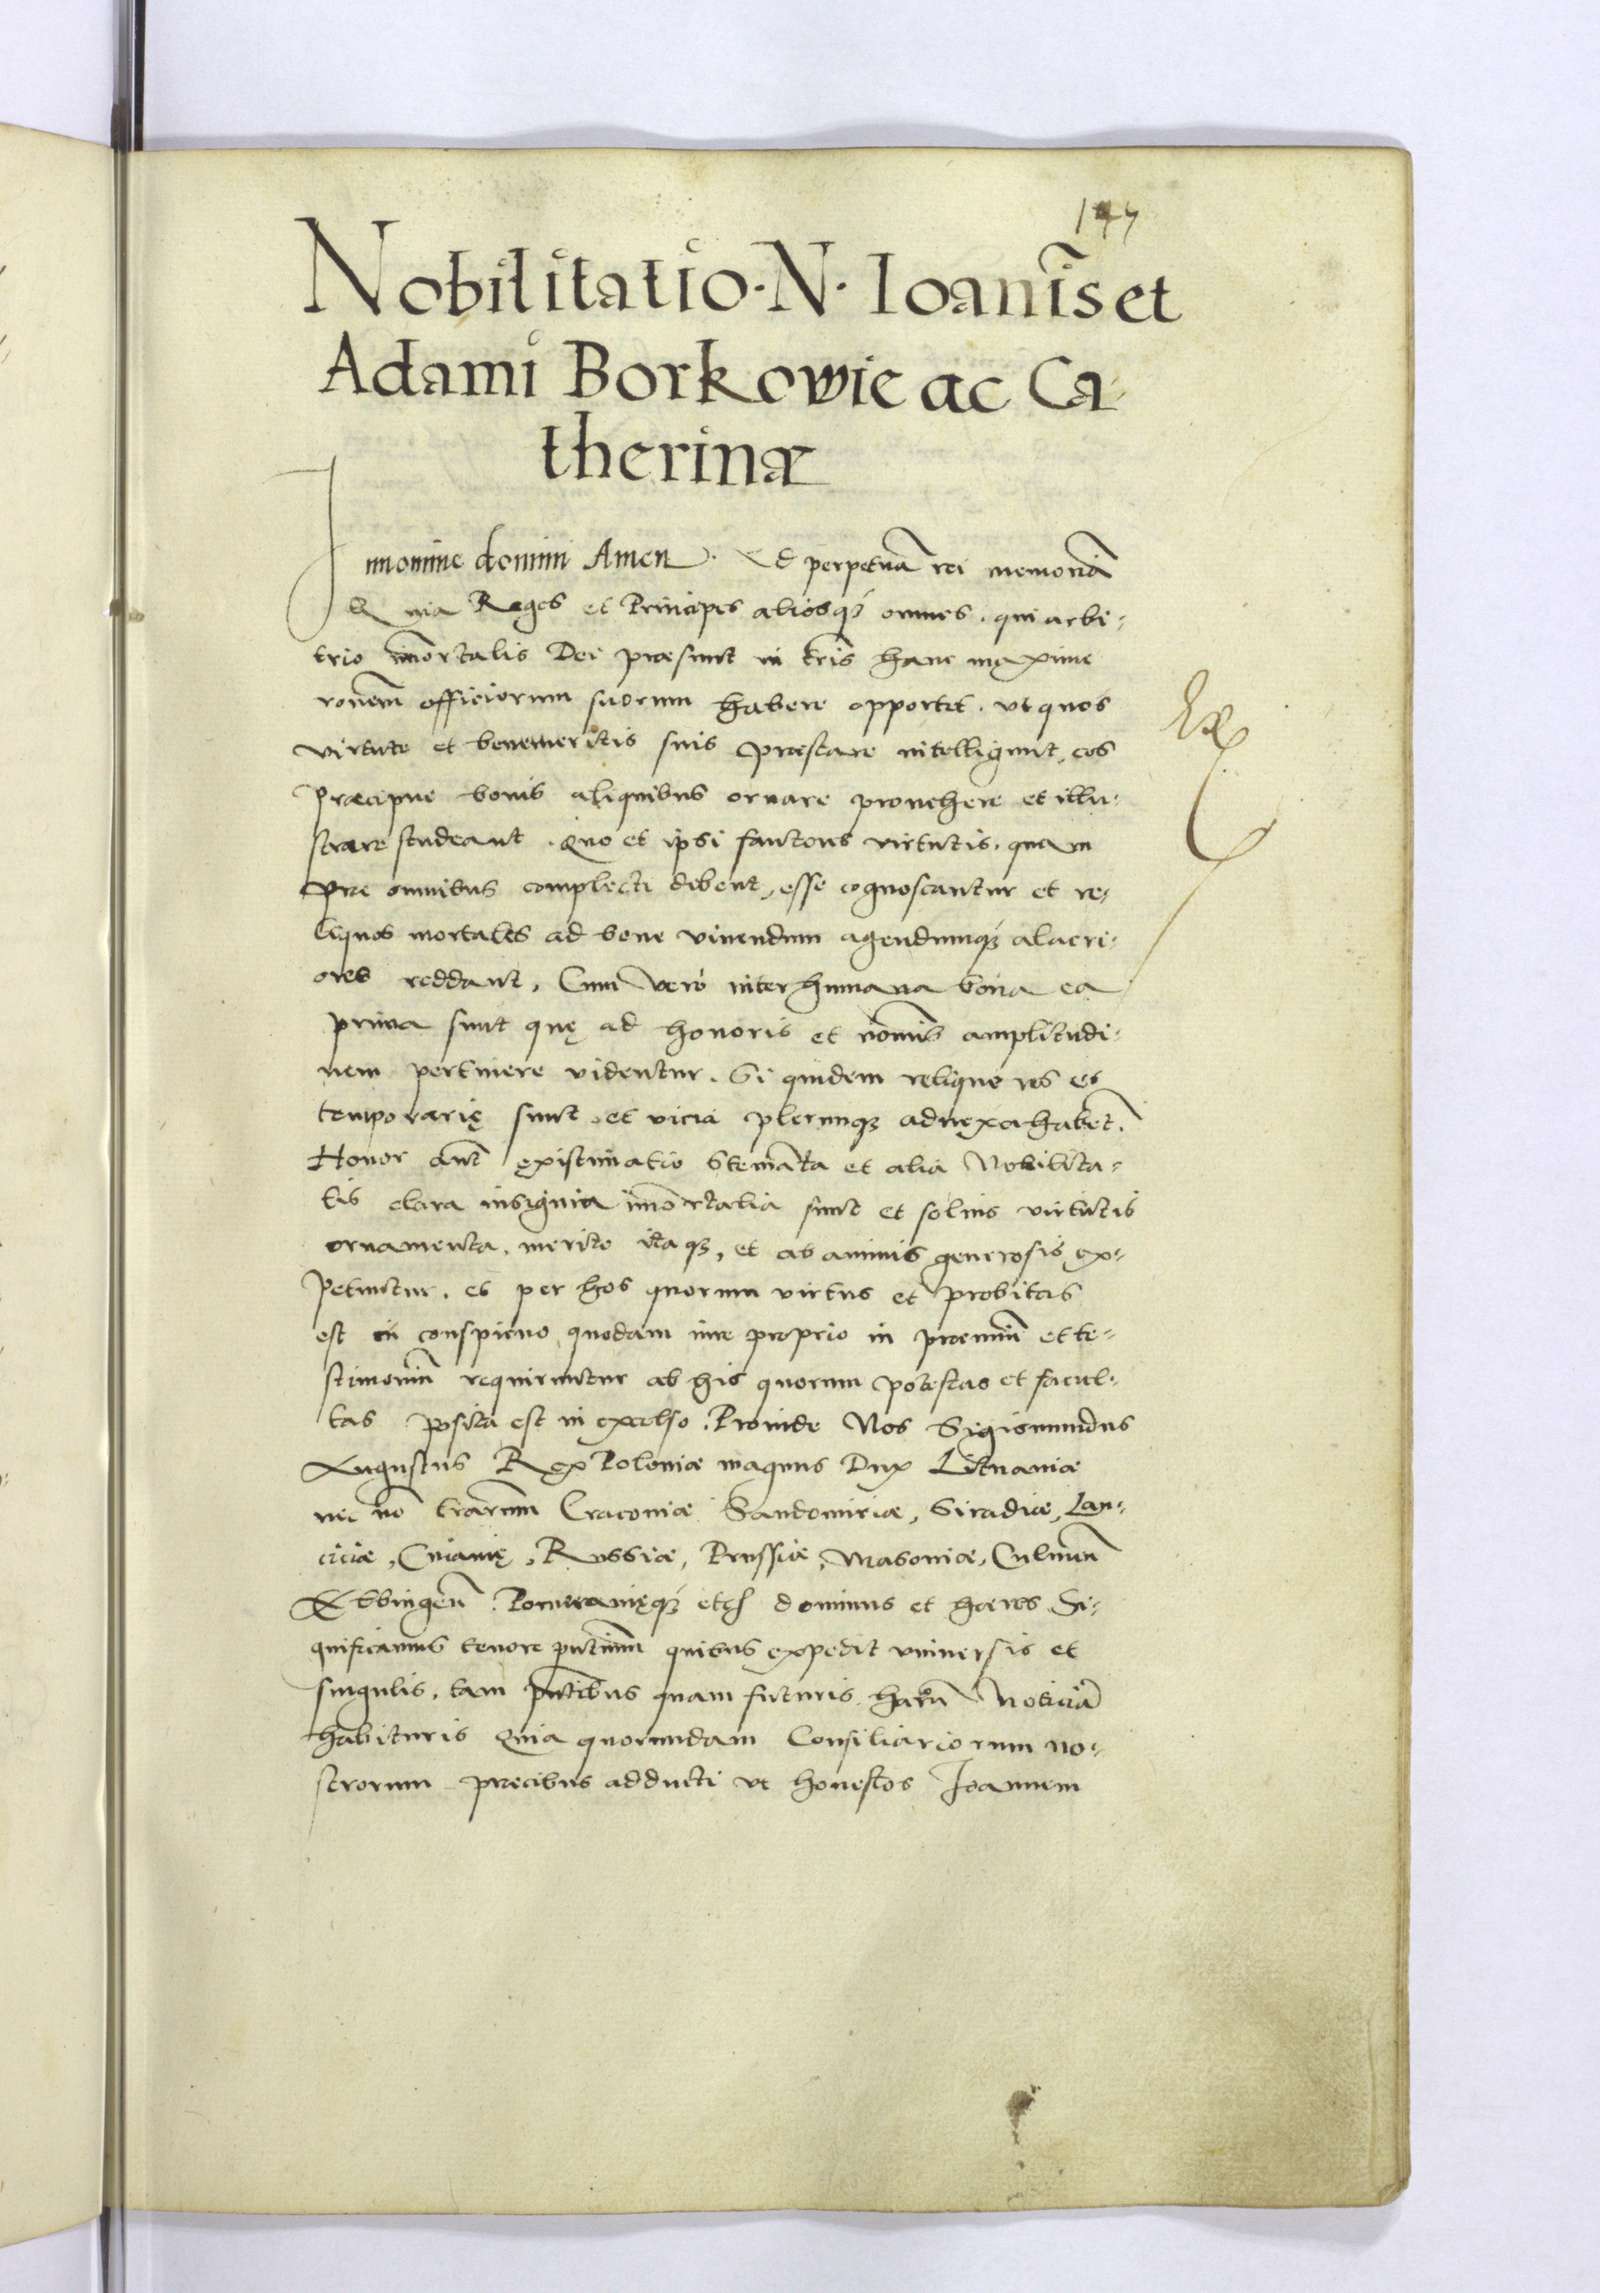 147
Nobilitatio · N · Ioanis et
Adami Borkowie ac Ca-
therinæ
In nomine domini Amen. Ad perpetuā rei memoriā
Quia Reges et Principes aliosq; omnes. qui arbi-
trio imortalis Dei præsunt in tris hanc maxime
ronem officiorum suorum habere opportet. vt quos
virtute et benemeritis suis præstare intelligunt, eos
præcipue bonis aliquibus ornare prouehere et illu-
strare studeant. Quo et ipsi fautores virtutis. quam
præ omnibus complecti debent, esse cognoscantur et re-
liquos mortales ad bene viuendum agendumq; alacri-
ores reddant. Cum vero inter humana bona ea
prima sunt quę ad honoris et nominis amplitudi-
nem pertinere videntur. Si quidem relique res et
temporarię sunt et vicia plerunq; adnexa habent.
Honor aut existimatio stemata et alia Nobilita-
tis clara insignia imortalia sunt et solius virtutis
ornamenta. merito itaq;, et ab animis generosis ex-
petuntur. et per hos quorum virtus et probitas
est in conspicuo quodam iure proprio in præmiū et te-
stimoniū requiruntur ab his quorum potestas et facul-
tas posita est in excelso. Proinde Nos Sigismundus
Augustus Rex Poloniæ magnus Dux Lituaniæ
nec nō trarum Cracouiæ Sandomiriæ, Siradiæ, Lan-
ciciæ, Cuiauię, Russiæ, Prussiæ, Masouiæ, Culmeñ
Elbingeñ. Pomeranięq; etc̃ dominus et hæres Si-
gnificamus tenore pntium quibus expedit vniuersis et
singulis. tam pntibus quam futuris harū Noticiā
habituris Quia quorundam Consiliariorum no-
strorum precibus adducti vt honestos Joannem